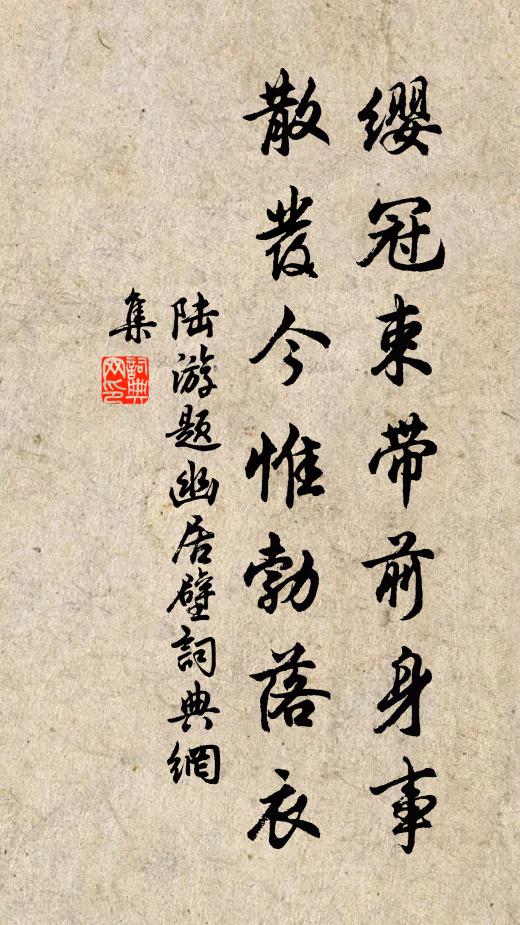 缨冠束带前身事
散发今惟勃落衣
陆游题幽居壁詞典網
集
詞典
网印